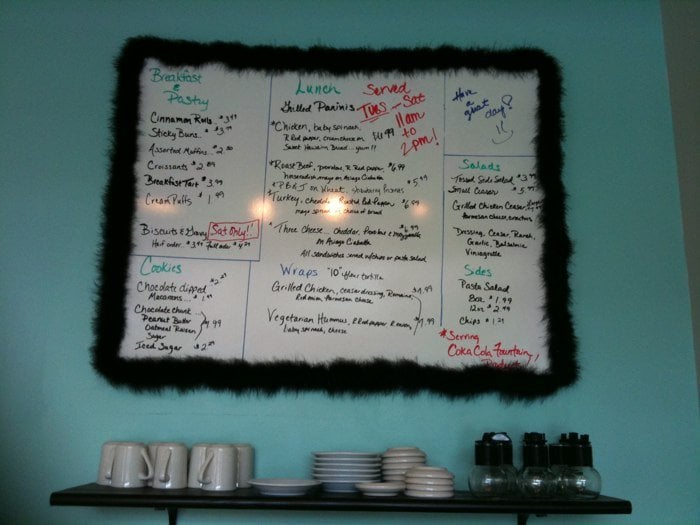 Breakfast
&
Pastry
Cinnamon Rolls $3.49
Sticky Buns.. $3.49
Assorted Muffins.. $2.50
Croissants $2.89
Breakfast Tart $3.99
Cream Puffs $1.99
Biscuits & Gravy Sat Only!!
Half order $3.49 Full order $4.29
Cookies
Chocolate dipped $2.29
Macarons...
Chocolate chunk...
Peanut Butter
Oatmeal Raisen
Sugar
Iced Sugar $2.29
Lunch
Served
Tues - Sat
11am
to
2pm!
Grilled Paninis
*Chicken, baby spinach,
R Red pepper, cream cheese on
Sweet Hawaiian Bread...yum!!
*Roast Beef, provolone, R Red pepper, $6.99
horseradish mayo on Asiago Ciabatta
*PB&J on wheat, strawberry preserves $5.99
*Turkey, cheddar, Roasted Red Pepper
mayo on choice of bread
*Three Cheese... cheddar, Provolone &
on Asiago Ciabatta
All sandwiches served w/chips or pasta salad
Wraps "10" flour tortilla
Grilled Chicken, Cesar dressing, Romaine,
Red onion, Parmesan Cheese
Vegetarian Hummus, R Red pepper, R onion,
baby spinach, cheese
Have
a
great day!
Salads
Tossed Side Salad $3.99
Small Ceaser
Grilled Chicken Ceaser
Parmesan cheese, croutons
Dressing, Ceasar, Ranch,
Garlic, Balsamic
Vinaigrette
Sides
Pasta Salad
8oz $1.99
12oz $2.99
Chips $1.29
*Serving
Coka Cola Fountain
Products